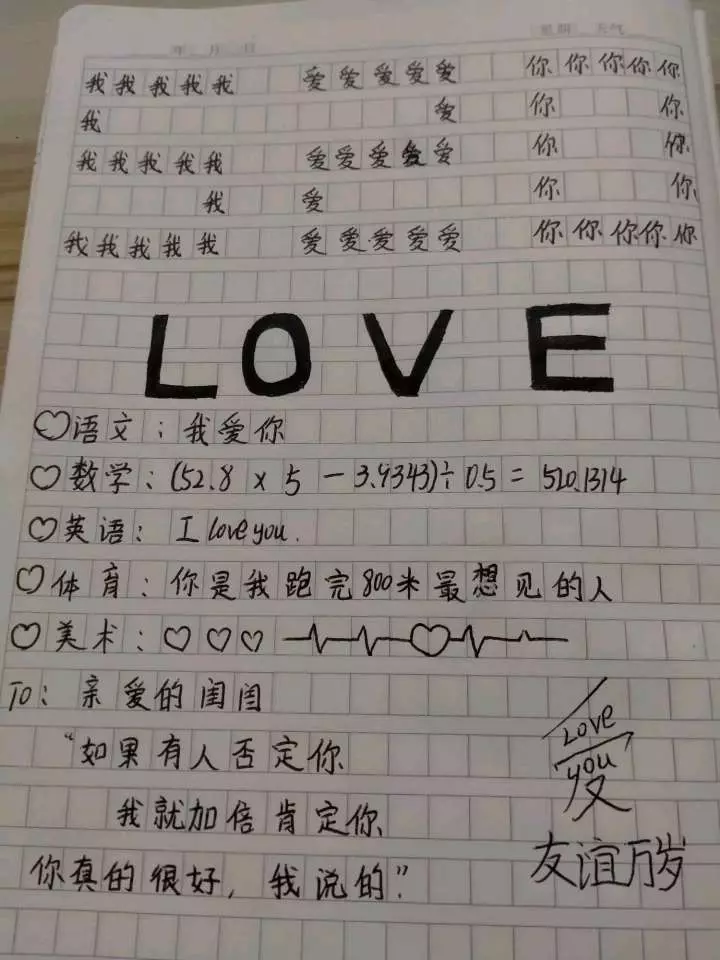 年 月 日 星期 天气
我我我我我 爱爱爱爱爱 你你你你你
我 爱 你 你
我我我我我 爱爱爱爱爱 你 你
我 爱 你 你
我我我我我 爱爱爱爱爱 你你你你你
LOVE
♡语文:我爱你
♡数学:(52.8 × 5 － 3.9343)÷0.5 = 520.1314
♡英语: I love you.
♡体育:你是我跑完800米最想见的人
♡美术:♡♡♡
To: 亲爱的闺闺
“如果有人否定你
我就加倍肯定你
你真的很好, 我说的”
Love
you
友谊万岁